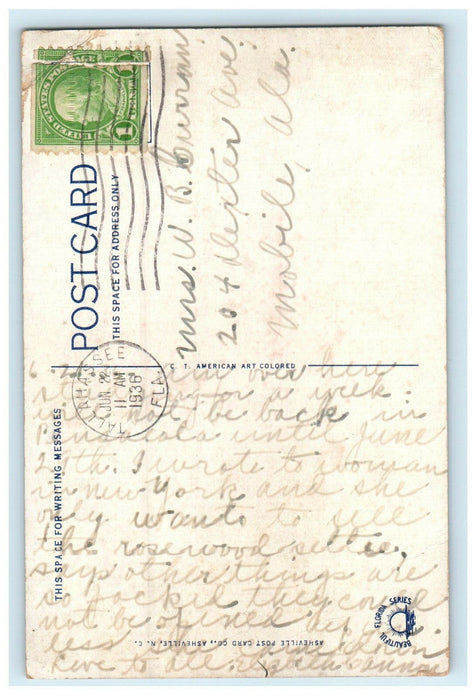 UNITED STATES POSTAGE
1
1
POST CARD
THIS SPACE FOR ADDRESS ONLY
Mrs. W. B. Curran
204 Dexter Ave.
Mobile, Ala.
TALLAHASSEE
JUN 22
11 AM
1936
FLA.
C. T. AMERICAN ART COLORED
THIS SPACE FOR WRITING MESSAGES
over here
for a week
not be back in
until June
th. I wrote to woman
in New York and she
only wants to sell
the rosewood settee,
says other things are
so packed they could
not be
Love to all.
BEAUTIFUL FLORIDA SERIES
ASHEVILLE POST CARD CO., ASHEVILLE, N. C.